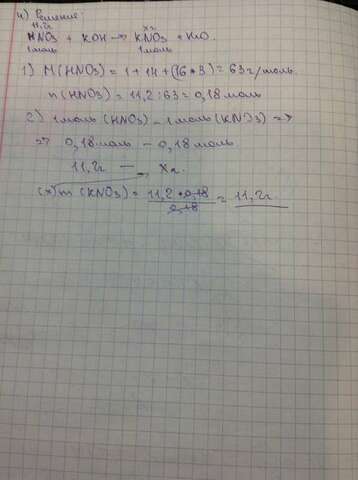 4) Решение:
11,2г xг
HNO3 + KOH → KNO3 + H2O
1 моль 1 моль
1) M(HNO3) = 1 + 14 + (16 * 3) = 63 г/моль.
n(HNO3) = 11,2 : 63 = 0,18 моль
2) 1 моль (HNO3) – 1 моль (KNO3) =>
=> 0,18 моль – 0,18 моль
11,2г — xг
(x) m (KNO3) = 11,2 * 0,18 / 0,18 = 11,2г.